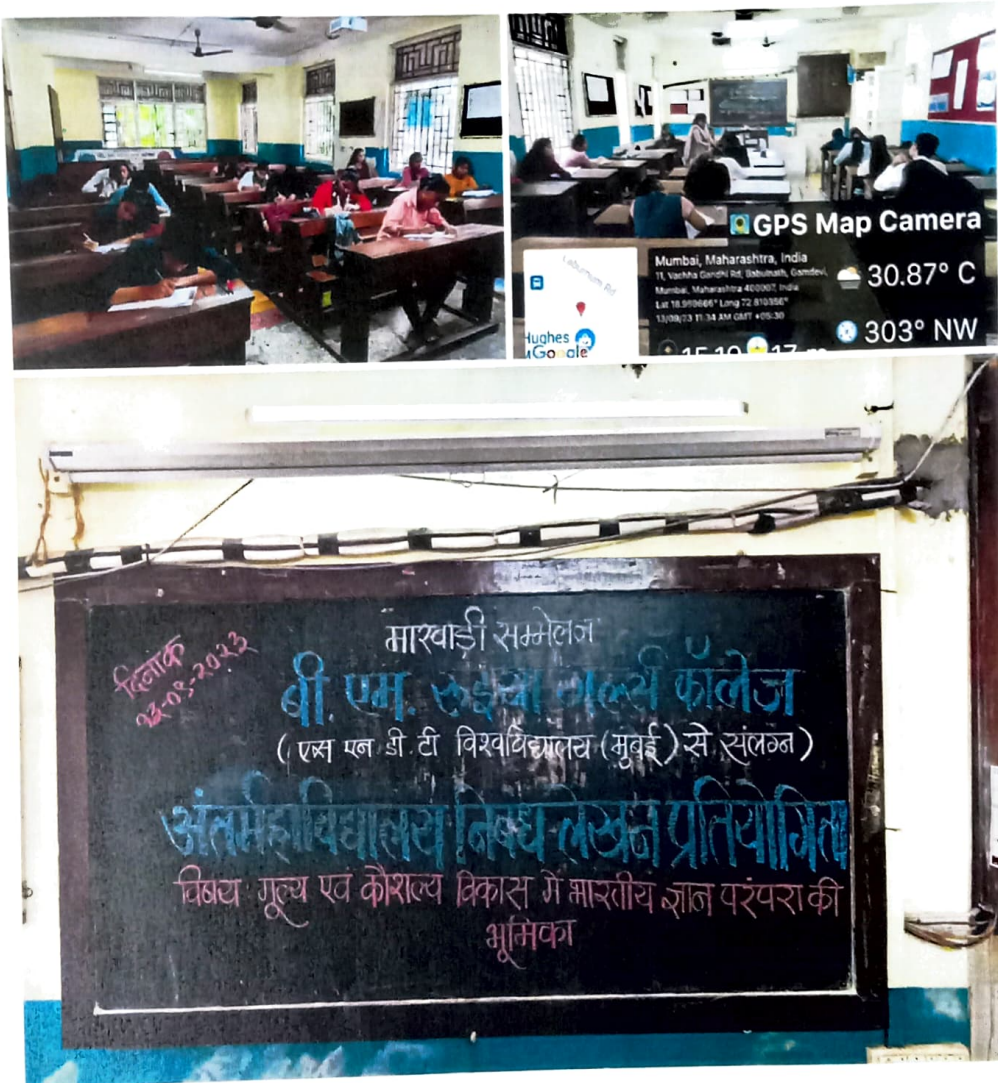 GPS Map Camera
Mumbai, Maharashtra, India
11, Vachha Gandhi Rd, Babulnath, Gamdevi,
Mumbai, Maharashtra 400007, India
Lat 18.959666° Long 72.810356°
13/09/23 11:34 AM GMT +05:30
30.87° C
303° NW
Laburnum Rd
Hughes
Google
दिनांक
१३-०९-२०२३
मारवाड़ी सम्मेलन
बी. एम. रुइया गर्ल्स कॉलेज
(एस एन डी टी विश्वविद्यालय (मुंबई) से संलग्न)
अंतर्महाविद्यालय निबंध लेखन प्रतियोगिता
विषय मूल्य एवं कौशल्य विकास में भारतीय ज्ञान परंपरा की
भूमिका